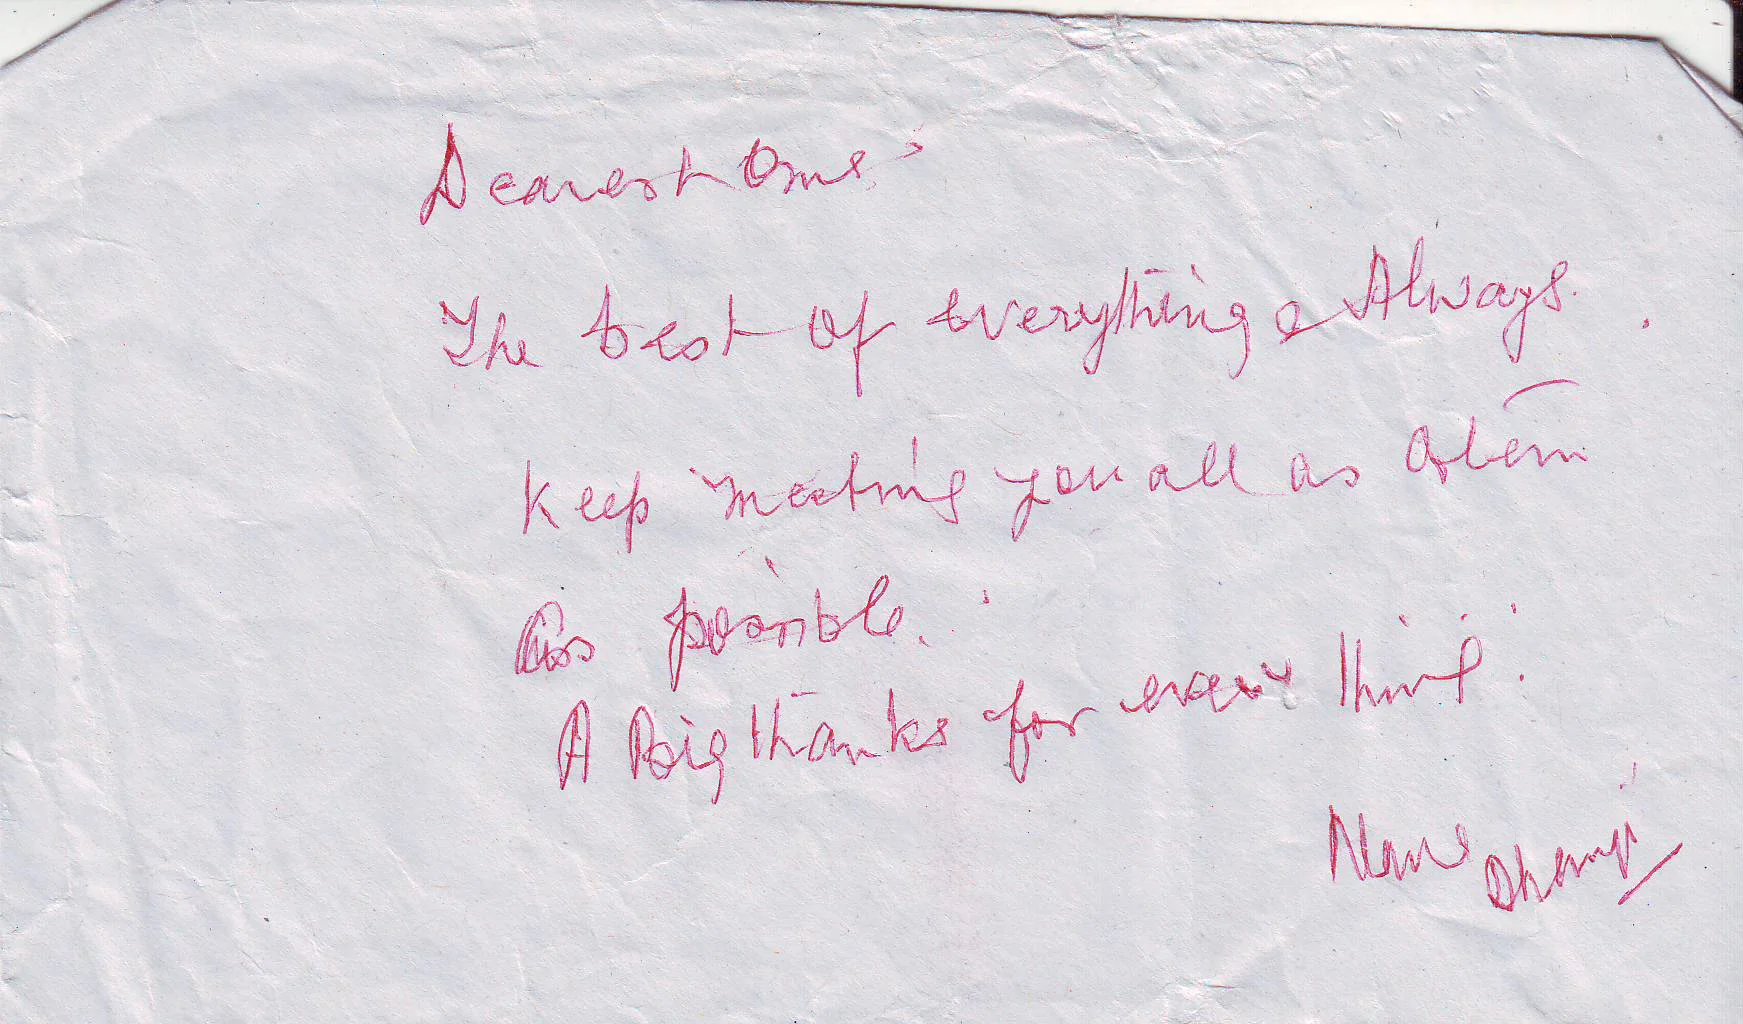 Dearest One
The best of everything & Always.
Keep meeting you all as often
as possible.
A Big thanks for every thing.